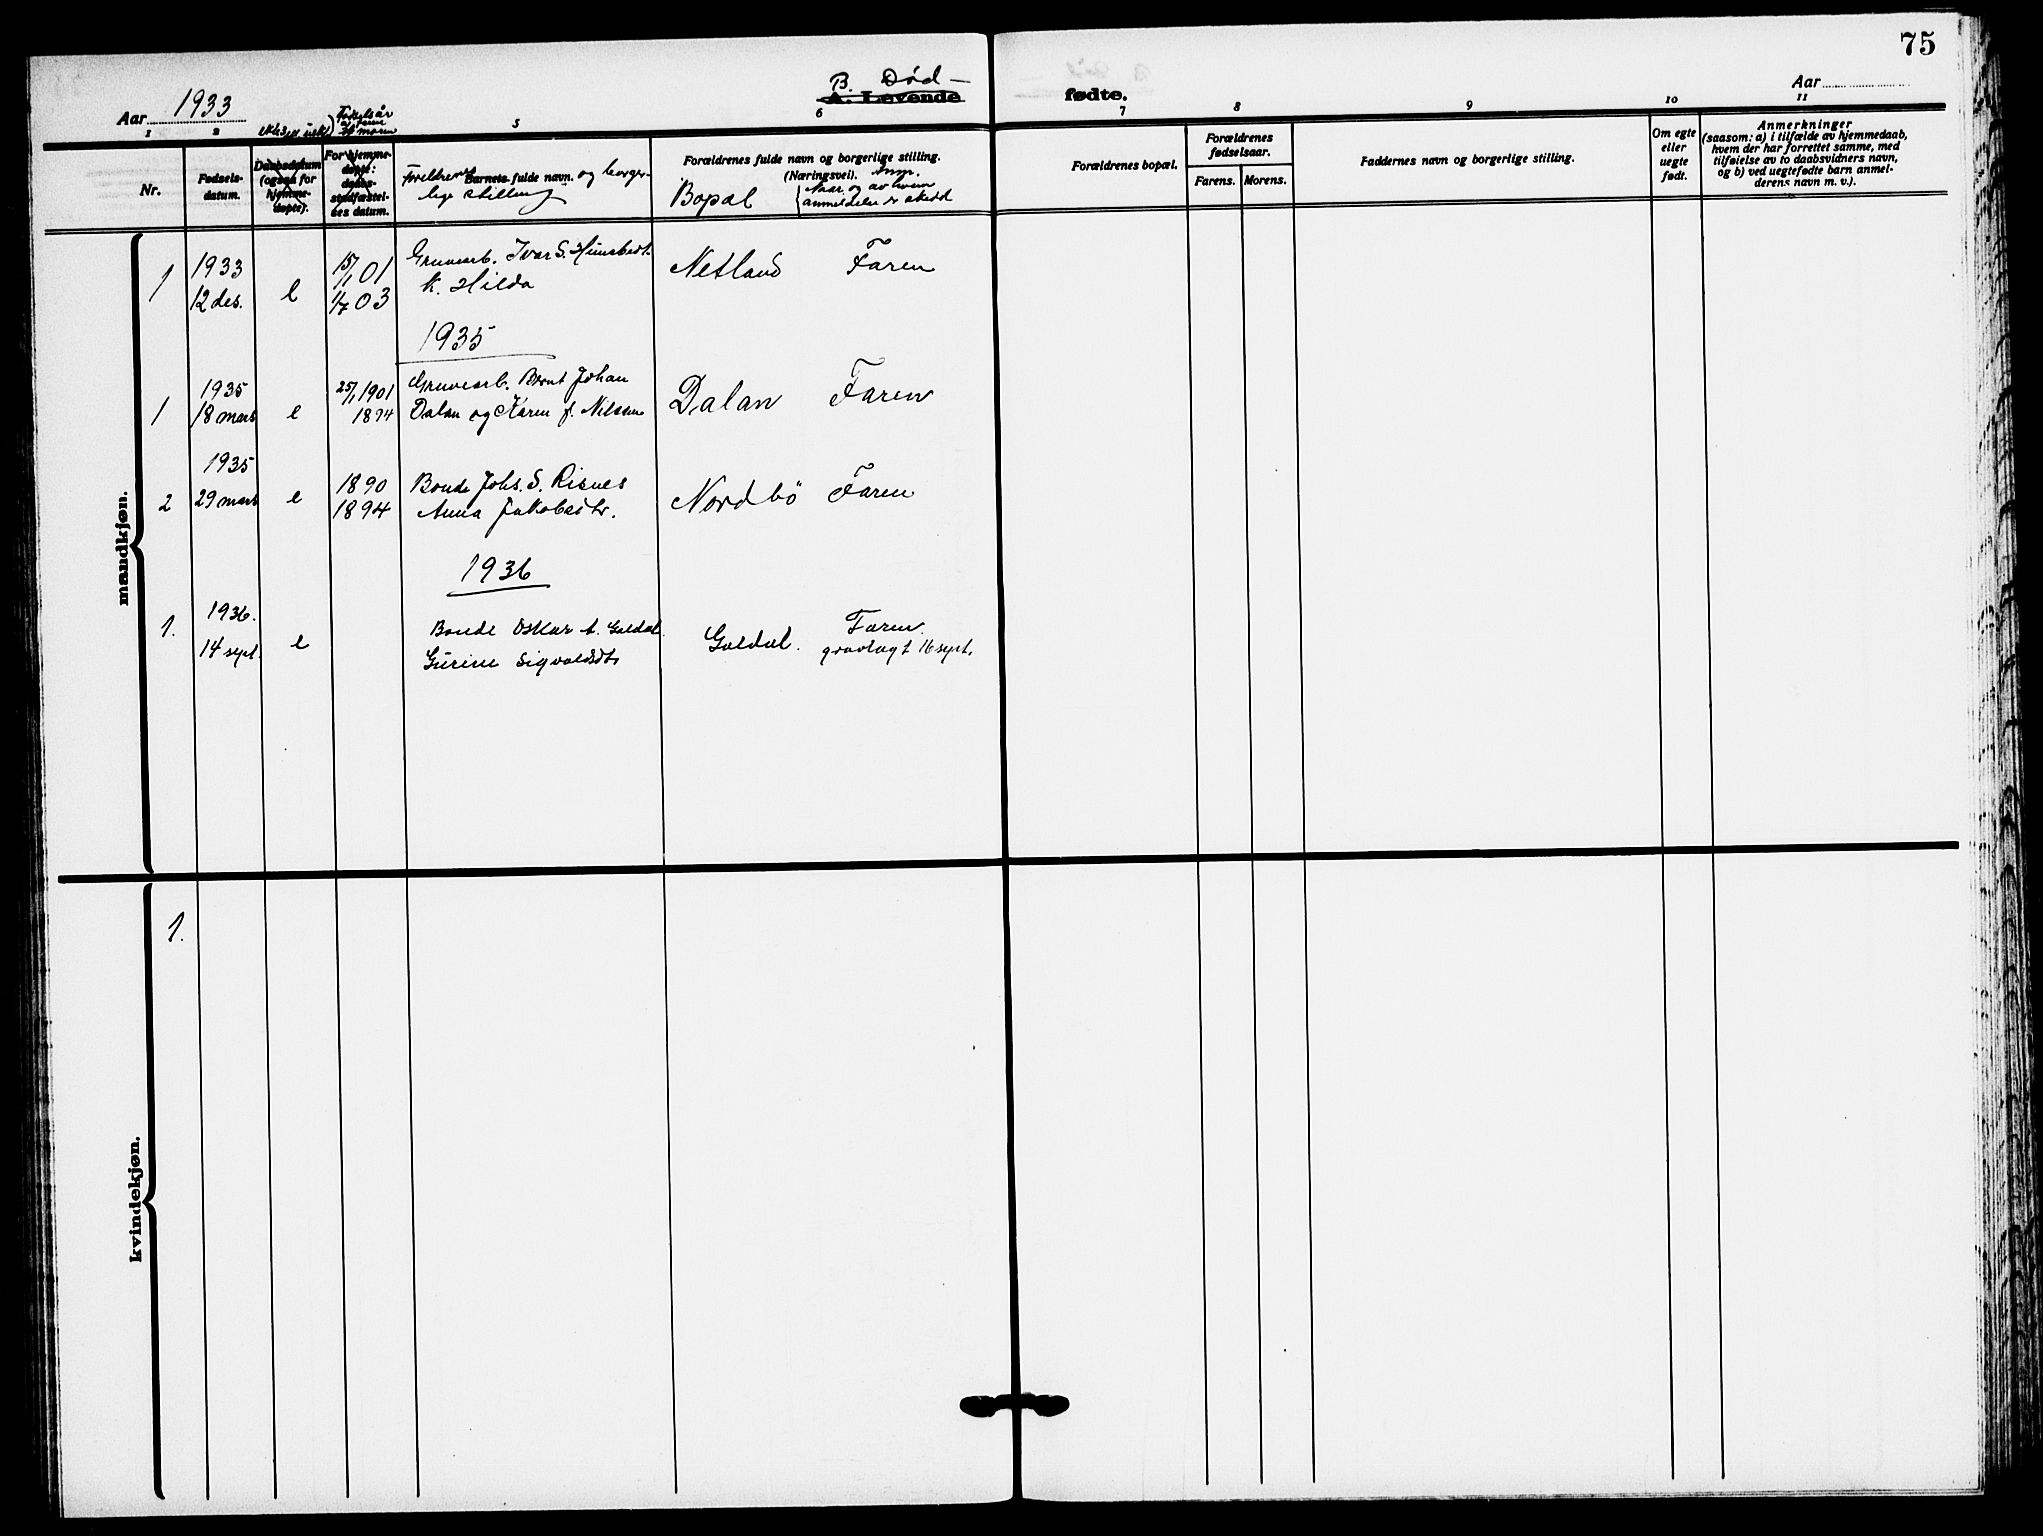 75
B. Død –
Aar 1933
A. Levende fødte.
Aar
1 2 5 6 7 8 9 10 11
Fødselsår
moren
Nr.
Fødsels-
datum.
Daabsdatum
(ogsaa for
hjemme-
døpte).
For hjemme-
døpte:
daabs-
stadfæstel-
ses datum.
Foreldrenes Barnets fulde navn. og borger-
lige stilling
Forældrenes fulde navn og borgerlige stilling.
(Næringsvei). Anm.
Bopæl
Naar og av hvem
anmeldelse er skedd
Forældrenes bopæl.
Forældrenes
fødselsaar.
Farens. Morens.
Faddernes navn og borgerlige stilling.
Om egte
eller
uegte
født.
Anmerkninger
(saasom: a) i tilfælde av hjemmedaab,
hvem der har forrettet samme, med
tilføielse av to daabsvidners navn,
og b) ved uegtefødte barn anmel-
derens navn m. v.).
mandkjøn.
1 1933 12 des. e 15/1 01 1/7 03 Gruvearb. Ivar S.
k. Hilda
Netland Faren
1935
1 1935 18 mars e 25/1 1901 1894 Gruvearb. Bernt Johan
Dalan og Karen f. Nilssen
Dalan Faren
2 1935 29 mars e 1890 1894 Bonde Johs. S. Risnes
Anna Jakobsdtr.
Nordbö Faren
1936
1. 1936. 14 sept. e Bonde Oskar A. Guldal.
Gurine Sigvaldsdtr
Guldal. Faren.
gravlagt 16 sept.
kvindekjøn.
1.